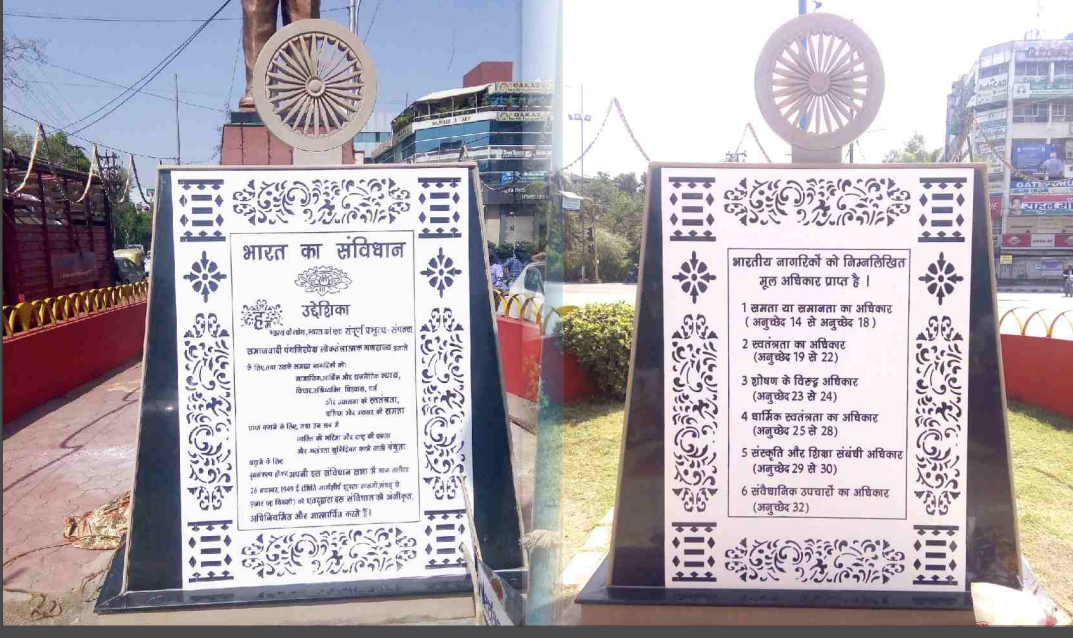 भारत का संविधान
उद्देशिका
हम
भारत के लोग, भारत को एक संपूर्ण प्रभुत्व-संपन्न
समाजवादी पंथनिरपेक्ष लोकतंत्रात्मक गणराज्य बनाने
के लिए, तथा उसके समस्त नागरिकों को:
सामाजिक, आर्थिक और राजनैतिक न्याय,
विचार, अभिव्यक्ति, विश्वास, धर्म
और उपासना की स्वतंत्रता,
प्रतिष्ठा और अवसर की समता
प्राप्त कराने के लिए, तथा उन सब में
व्यक्ति की गरिमा और राष्ट्र की एकता
और अखंडता सुनिश्चित करने वाली बंधुता
बढ़ाने के लिए
दृढ़संकल्प होकर अपनी इस संविधान सभा में आज तारीख
26 नवम्बर, 1949 ई (मिति मार्गशीर्ष शुक्ला सप्तमी, संवत् दो
हजार छह विक्रमी) को एतद्द्वारा इस संविधान को अंगीकृत,
अधिनियमित और आत्मार्पित करते हैं।
भारतीय नागरिकों को निम्नलिखित
मूल अधिकार प्राप्त है ।
1 समता या समानता का अधिकार
( अनुच्छेद 14 से अनुच्छेद 18 )
2 स्वतंत्रता का अधिकार
(अनुच्छेद 19 से 22)
3 शोषण के विरूद्ध अधिकार
(अनुच्छेद 23 से 24)
4 धार्मिक स्वतंत्रता का अधिकार
(अनुच्छेद 25 से 28)
5 संस्कृति और शिक्षा संबंधी अधिकार
(अनुच्छेद 29 से 30)
6 संवैधानिक उपचारों का अधिकार
(अनुच्छेद 32)
AutoCAD